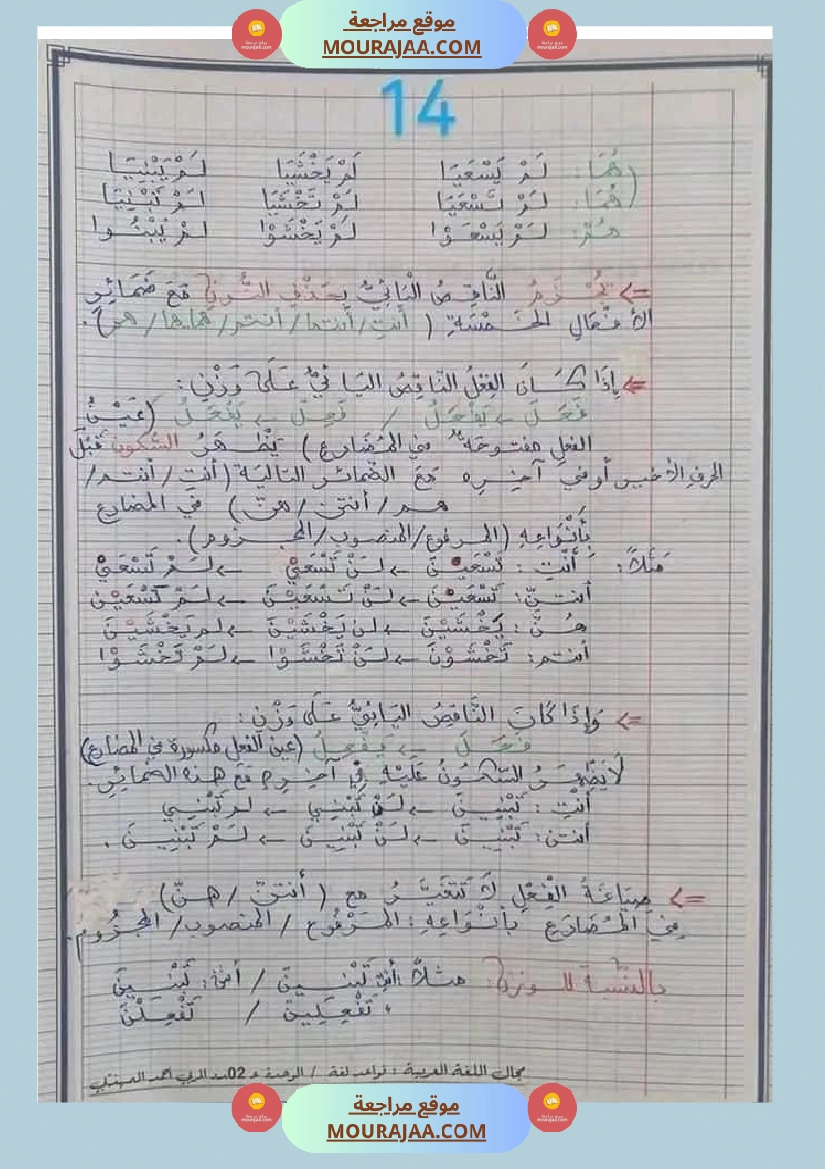 موقع مراجعة
MOURAJAA.COM
14
هُمَا: لَمْ يَسْعَيَا لَمْ يَخْشَيَا لَمْ يَبْنِيَا
هُمَا: لَمْ تَسْعَيَا لَمْ تَخْشَيَا لَمْ تَبْنِيَا
هُمْ: لَمْ يَسْعَوْا لَمْ يَخْشَوْا لَمْ يَبْنُوا
=> يُجْزَمُ النَّاقِصُ الْيَائِيُّ بِحَذْفِ النُّونِ مَعَ ضَمَائِرِ
الأَفْعَالِ الخَمْسَةِ ( أنتِ/أنتما/أنتم/هما،هما/هم).
=> إِذَا كَانَ الفِعْلُ النَّاقِصُ اليَائيُّ عَلَى وَزْنِ:
فَعَلَ ← يَفْعَلُ / فَعِلَ ← يَفْعَلُ (عَيْنُ
الفعلِ مفتوحَة في المُضَارع) يَظْهَرُ السُّكُون قَبْلَ
الحرفِ الأخير أو في آخِرِه مَعَ الضَّمائر التالِيَة (أنتِ/أنتم/
هم/أنتنّ/هنّ) في المضارع
بِأَنْوَاعِهِ (المرفوع/المنصوب/المجزوم).
مَثَلاً: أَنْتِ: تَسْعَيْنَ ← لَنْ تَسْعَيْ ← لَمْ تَسْعَيْ
أنتنّ: تَسْعَيْنَ ← لَنْ تَسْعَيْنَ ← لَمْ تَسْعَيْنَ
هُنَّ: يَخْشَيْنَ ← لن يَخْشَيْنَ ← لم يَخْشَيْنَ
أنتم: تَخْشَوْنَ ← لَنْ تَخْشَوْا ← لَمْ تَخْشَوْا
=> وَإِذَا كَانَ النَّاقِصُ اليَائِيُّ عَلَى وَزْنِ:
فَعَلَ ← يَفْعِلُ (عين الفعل مكسورة في المضارع)
لاَ يَظْهَرُ السُّكُونُ عَلَيْهِ في آخِرِهِ مَعَ هذه الضَّمائِرِ.
أنْتِ: تَبْنِينَ ← لَنْ تَبْنِي ← لم تَبْنِي
أنتن: تَبْنِينَ ← لَنْ تَبْنِينَ ← لَمْ تَبْنِينَ.
=> صِيَاغَةُ الْفِعْلِ لاَ تَتَغَيَّرُ مع (أنتنّ/هنّ)
في المُضَارَعِ بِأَنْوَاعِهِ: المَرْفُوع/المنصوب/المجزُوم.
بالنِّسْبَة للوزن: مثلاً أنتِ تَبْنِينَ / أنتنّ: تَبْنِينَ
تَفْعِلِينَ / تَفْعِلْنَ
مجال اللغة العربية: قواعد لغة / الوحدة 02
موقع مراجعة
MOURAJAA.COM